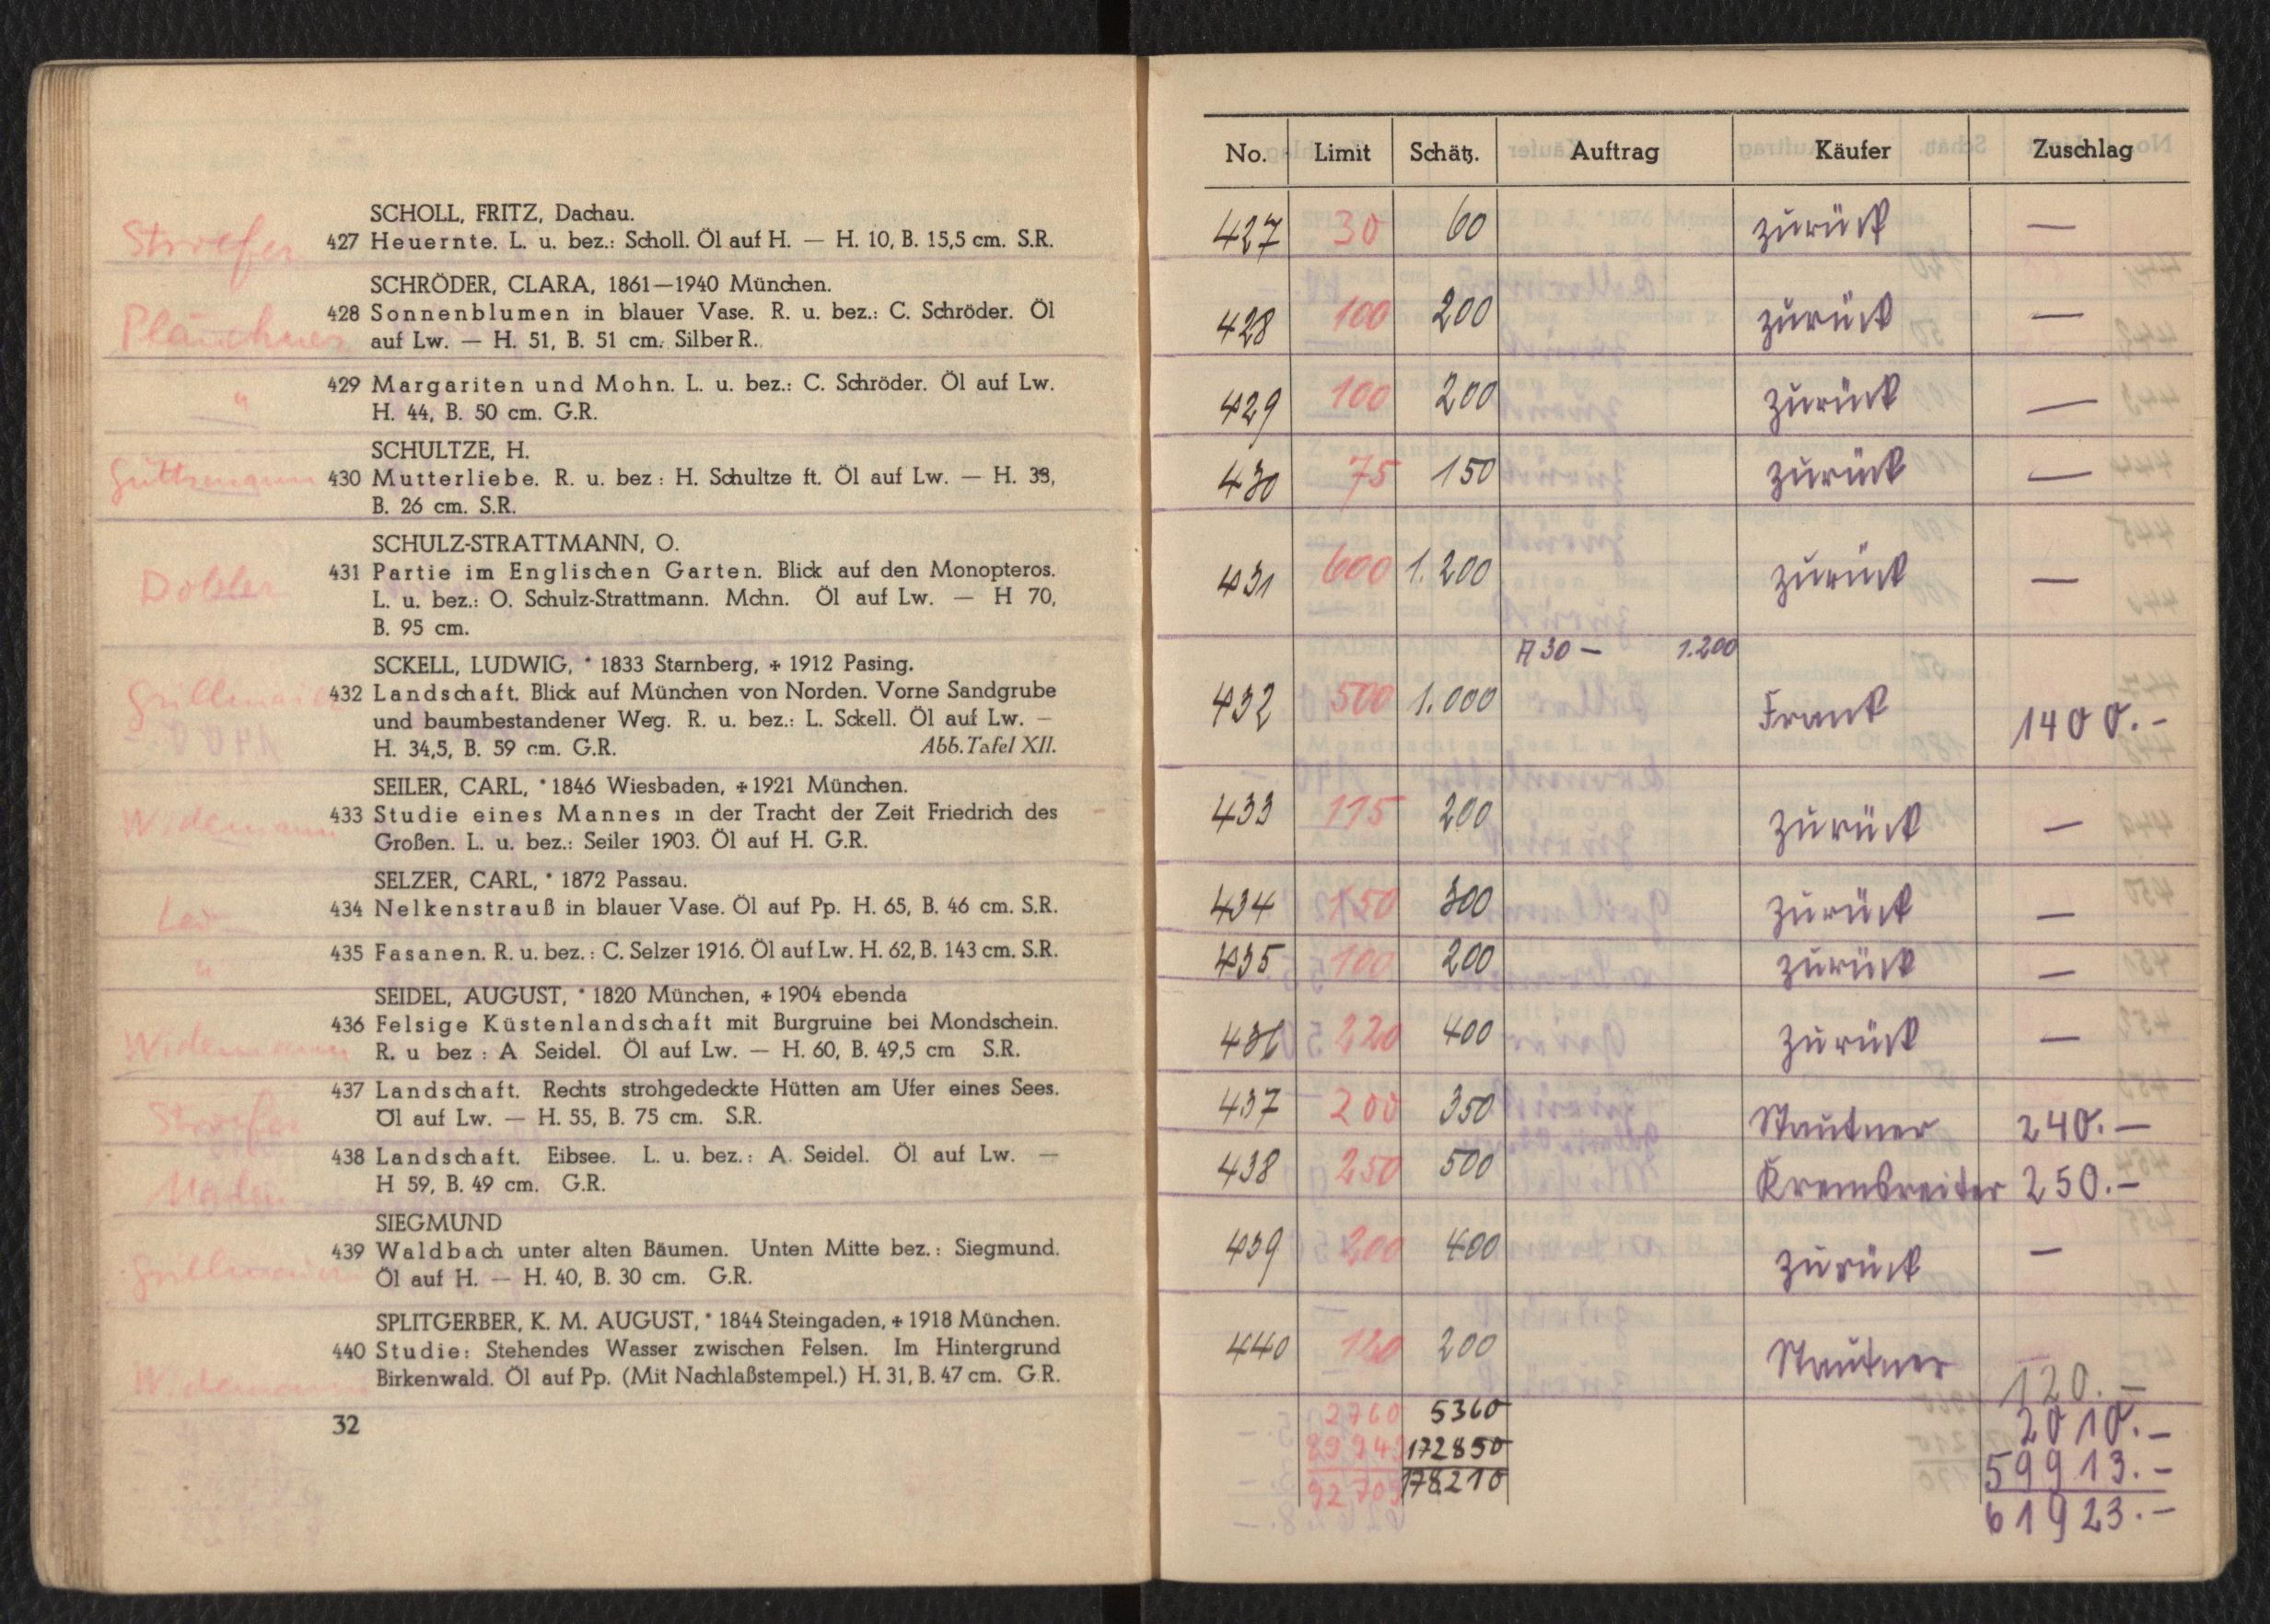 SCHOLL, FRITZ, Dachau.
427 Heuernte. L. u. bez.: Scholl. Öl auf H. — H. 10, B. 15,5 cm. S.R.
SCHRÖDER, CLARA, 1861—1940 München.
428 Sonnenblumen in blauer Vase. R. u. bez.: C. Schröder. Öl
auf Lw. — H. 51, B. 51 cm. Silber R.
429 Margariten und Mohn. L. u. bez.: C. Schröder. Öl auf Lw.
"
H. 44, B. 50 cm. G.R.
SCHULTZE, H.
430 Mutterliebe. R. u. bez : H. Schultze ft. Öl auf Lw. — H. 33,
B. 26 cm. S.R.
SCHULZ-STRATTMANN, O.
431 Partie im Englischen Garten. Blick auf den Monopteros.
L. u. bez.: O. Schulz-Strattmann. Mchn. Öl auf Lw. — H 70,
B. 95 cm.
SCKELL, LUDWIG, * 1833 Starnberg, + 1912 Pasing.
432 Landschaft. Blick auf München von Norden. Vorne Sandgrube
und baumbestandener Weg. R. u. bez.: L. Sckell. Öl auf Lw. —
H. 34,5, B. 59 cm. G.R. Abb. Tafel XII.
SEILER, CARL, * 1846 Wiesbaden, + 1921 München.
Widemann 433 Studie eines Mannes in der Tracht der Zeit Friedrich des
Großen. L. u. bez.: Seiler 1903. Öl auf H. G.R.
SELZER, CARL, * 1872 Passau.
434 Nelkenstrauß in blauer Vase. Öl auf Pp. H. 65, B. 46 cm. S.R.
" 435 Fasanen. R. u. bez.: C. Selzer 1916. Öl auf Lw. H. 62, B. 143 cm. S.R.
SEIDEL, AUGUST, * 1820 München, + 1904 ebenda
436 Felsige Küstenlandschaft mit Burgruine bei Mondschein.
Widemann R. u bez : A Seidel. Öl auf Lw. — H. 60, B. 49,5 cm S.R.
437 Landschaft. Rechts strohgedeckte Hütten am Ufer eines Sees.
Öl auf Lw. — H. 55, B. 75 cm. S.R.
438 Landschaft. Eibsee. L. u. bez.: A. Seidel. Öl auf Lw. —
H 59, B. 49 cm. G.R.
SIEGMUND
439 Waldbach unter alten Bäumen. Unten Mitte bez.: Siegmund.
Öl auf H. — H. 40, B. 30 cm. G.R.
SPLITGERBER, K. M. AUGUST, * 1844 Steingaden, + 1918 München.
440 Studie: Stehendes Wasser zwischen Felsen. Im Hintergrund
Widemann Birkenwald. Öl auf Pp. (Mit Nachlaßstempel.) H. 31, B. 47 cm. G.R.
32
No. Limit Schätz. Auftrag Käufer Zuschlag
427 30 60 zurück —
428 100 200 zurück —
429 100 200 zurück —
430 75 150 zurück —
431 600 1.200 zurück —
A 30 — 1.200
432 500 1.000 Frank 1400.-
433 115 200 zurück —
434 150 300 zurück —
435 100 200 zurück —
436 220 400 zurück —
437 200 350 Stautner 240.—
438 250 500 Krembreiter 250.—
439 200 400 zurück —
440 120 200 Stautner 120.—
2760 5360 2010.—
89943 172850 59913.-
92703 178210 61923.-